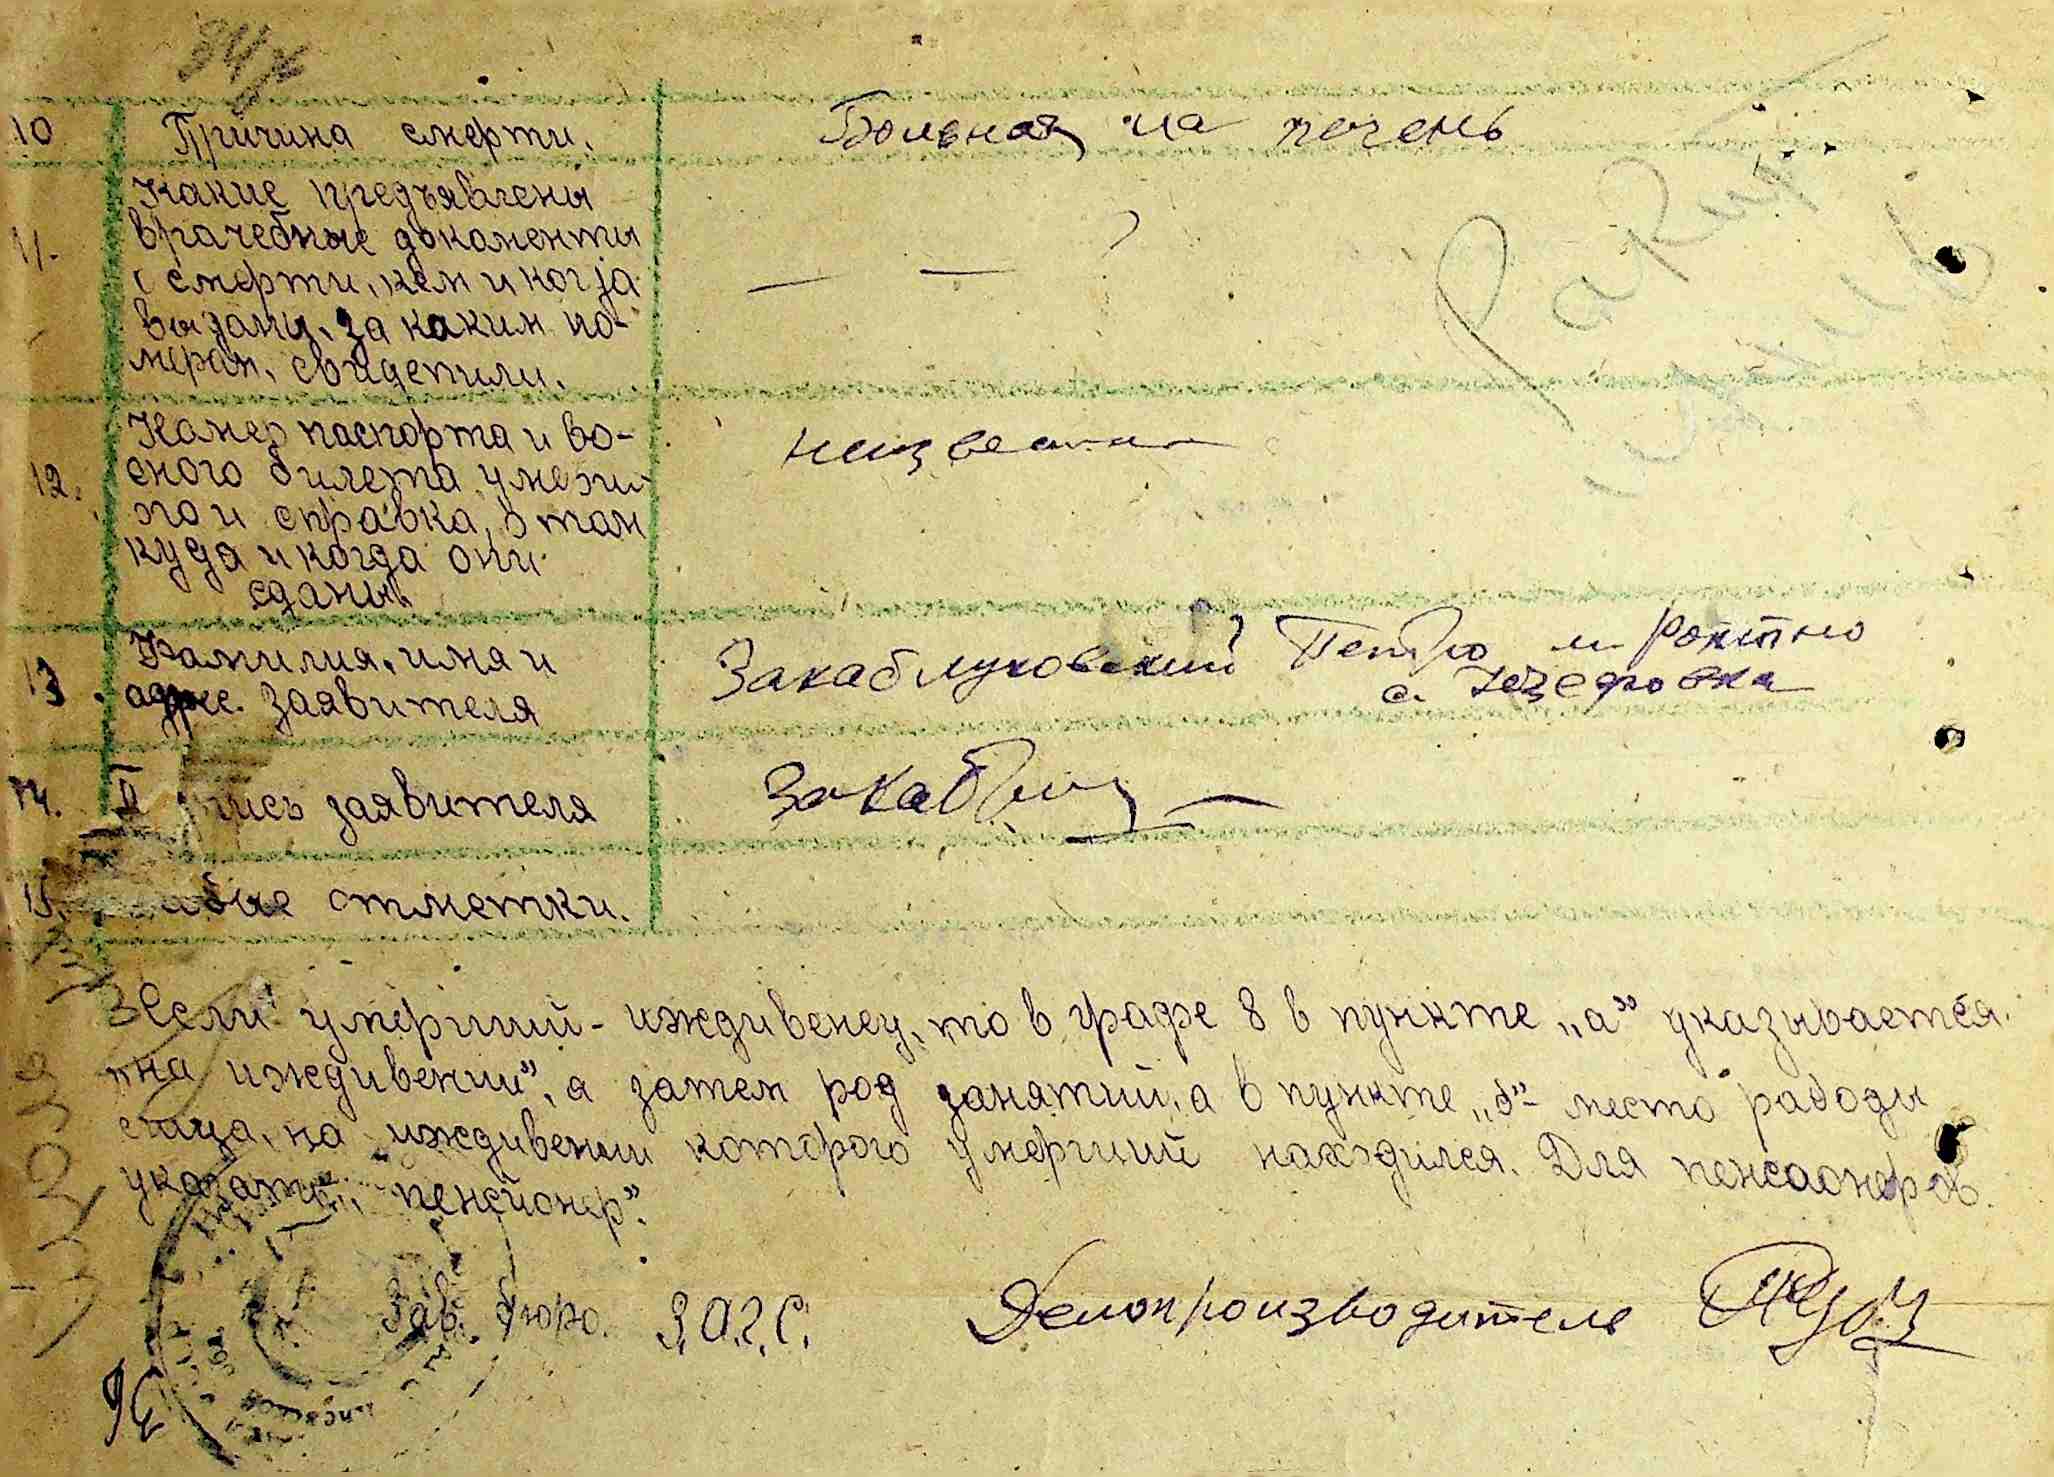 10 Причина смерти. Больная на печень
11. Какие предъявлены
врачебные докоменты
смерти, кем и когда
выданы, за каким но-
мером, свидетили.
12. Номер паспорта и во-
еного билета умерш
эго и справка, о том
куда и когда они
сданы
неизвестно
13. Фамилия, имя и
адрес. заявителя
Закаблуковский Петро м Рокитно
с. Юзефовка
14. П пись заявителя Закабл
15. обые отметки.
Если умерший - иждивенец, то в графе 8 в пункте „а” указывается
„на иждивении”, а затем род занятий, а в пункте „б”- место рабоды
на иждивении которого умерший находился. Для пенсионеров
указать „пенсионер”.
Зав. бюро. З.А.Г.С. Делопроизводитель